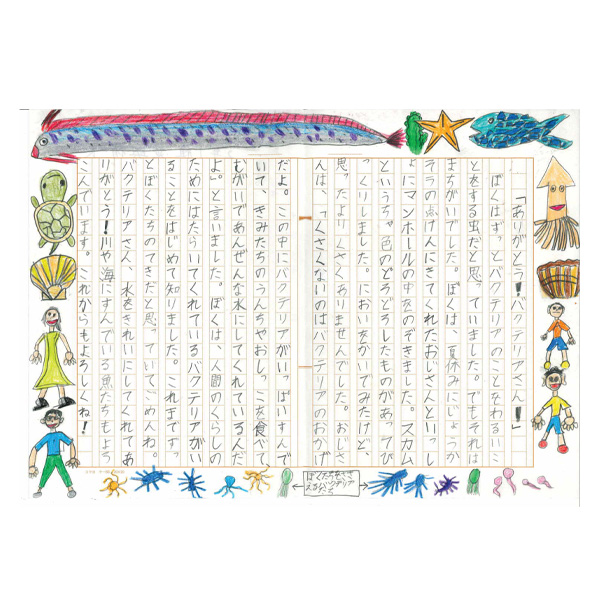 「ありがとう！バクテリアさん！」
ぼくはずっとバクテリアのことをわるいこ
とをする虫だと思っていました。でもそれは
まちがいでした。ぼくは、夏休みにじょうか
そうの点けんにきてくれたおじさんといっし
ょにマンホールの中をのぞきました。スカム
というちゃ色のどろどろしたものがあってび
っくりしました。においをかいでみたけど、
思ったよりくさくありませんでした。おじさ
んは、「くさくないのはバクテリアのおかげ
だよ。この中にバクテリアがいっぱいすんで
いて、きみたちのうんちやおしっこを食べて、
むがいであんぜんな水にしてくれているんだ
よ。」と言いました。ぼくは、人間のくらしの
ためにはたらいてくれているバクテリアがい
ることをはじめて知りました。これまでずっ
とぼくたちのてきだと思っていてごめんね。
バクテリアさん、水をきれいにしてくれてあ
りがとう！川や海にすんでいる魚たちもよろ
こんでいます。これからもよろしくね！